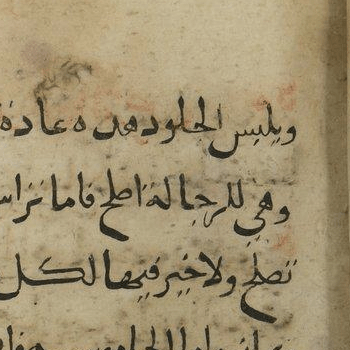 ويلبس الجلود هده عادة
وهي للرجالة اصلح فاما
تصلح ولا خير فيها لكل